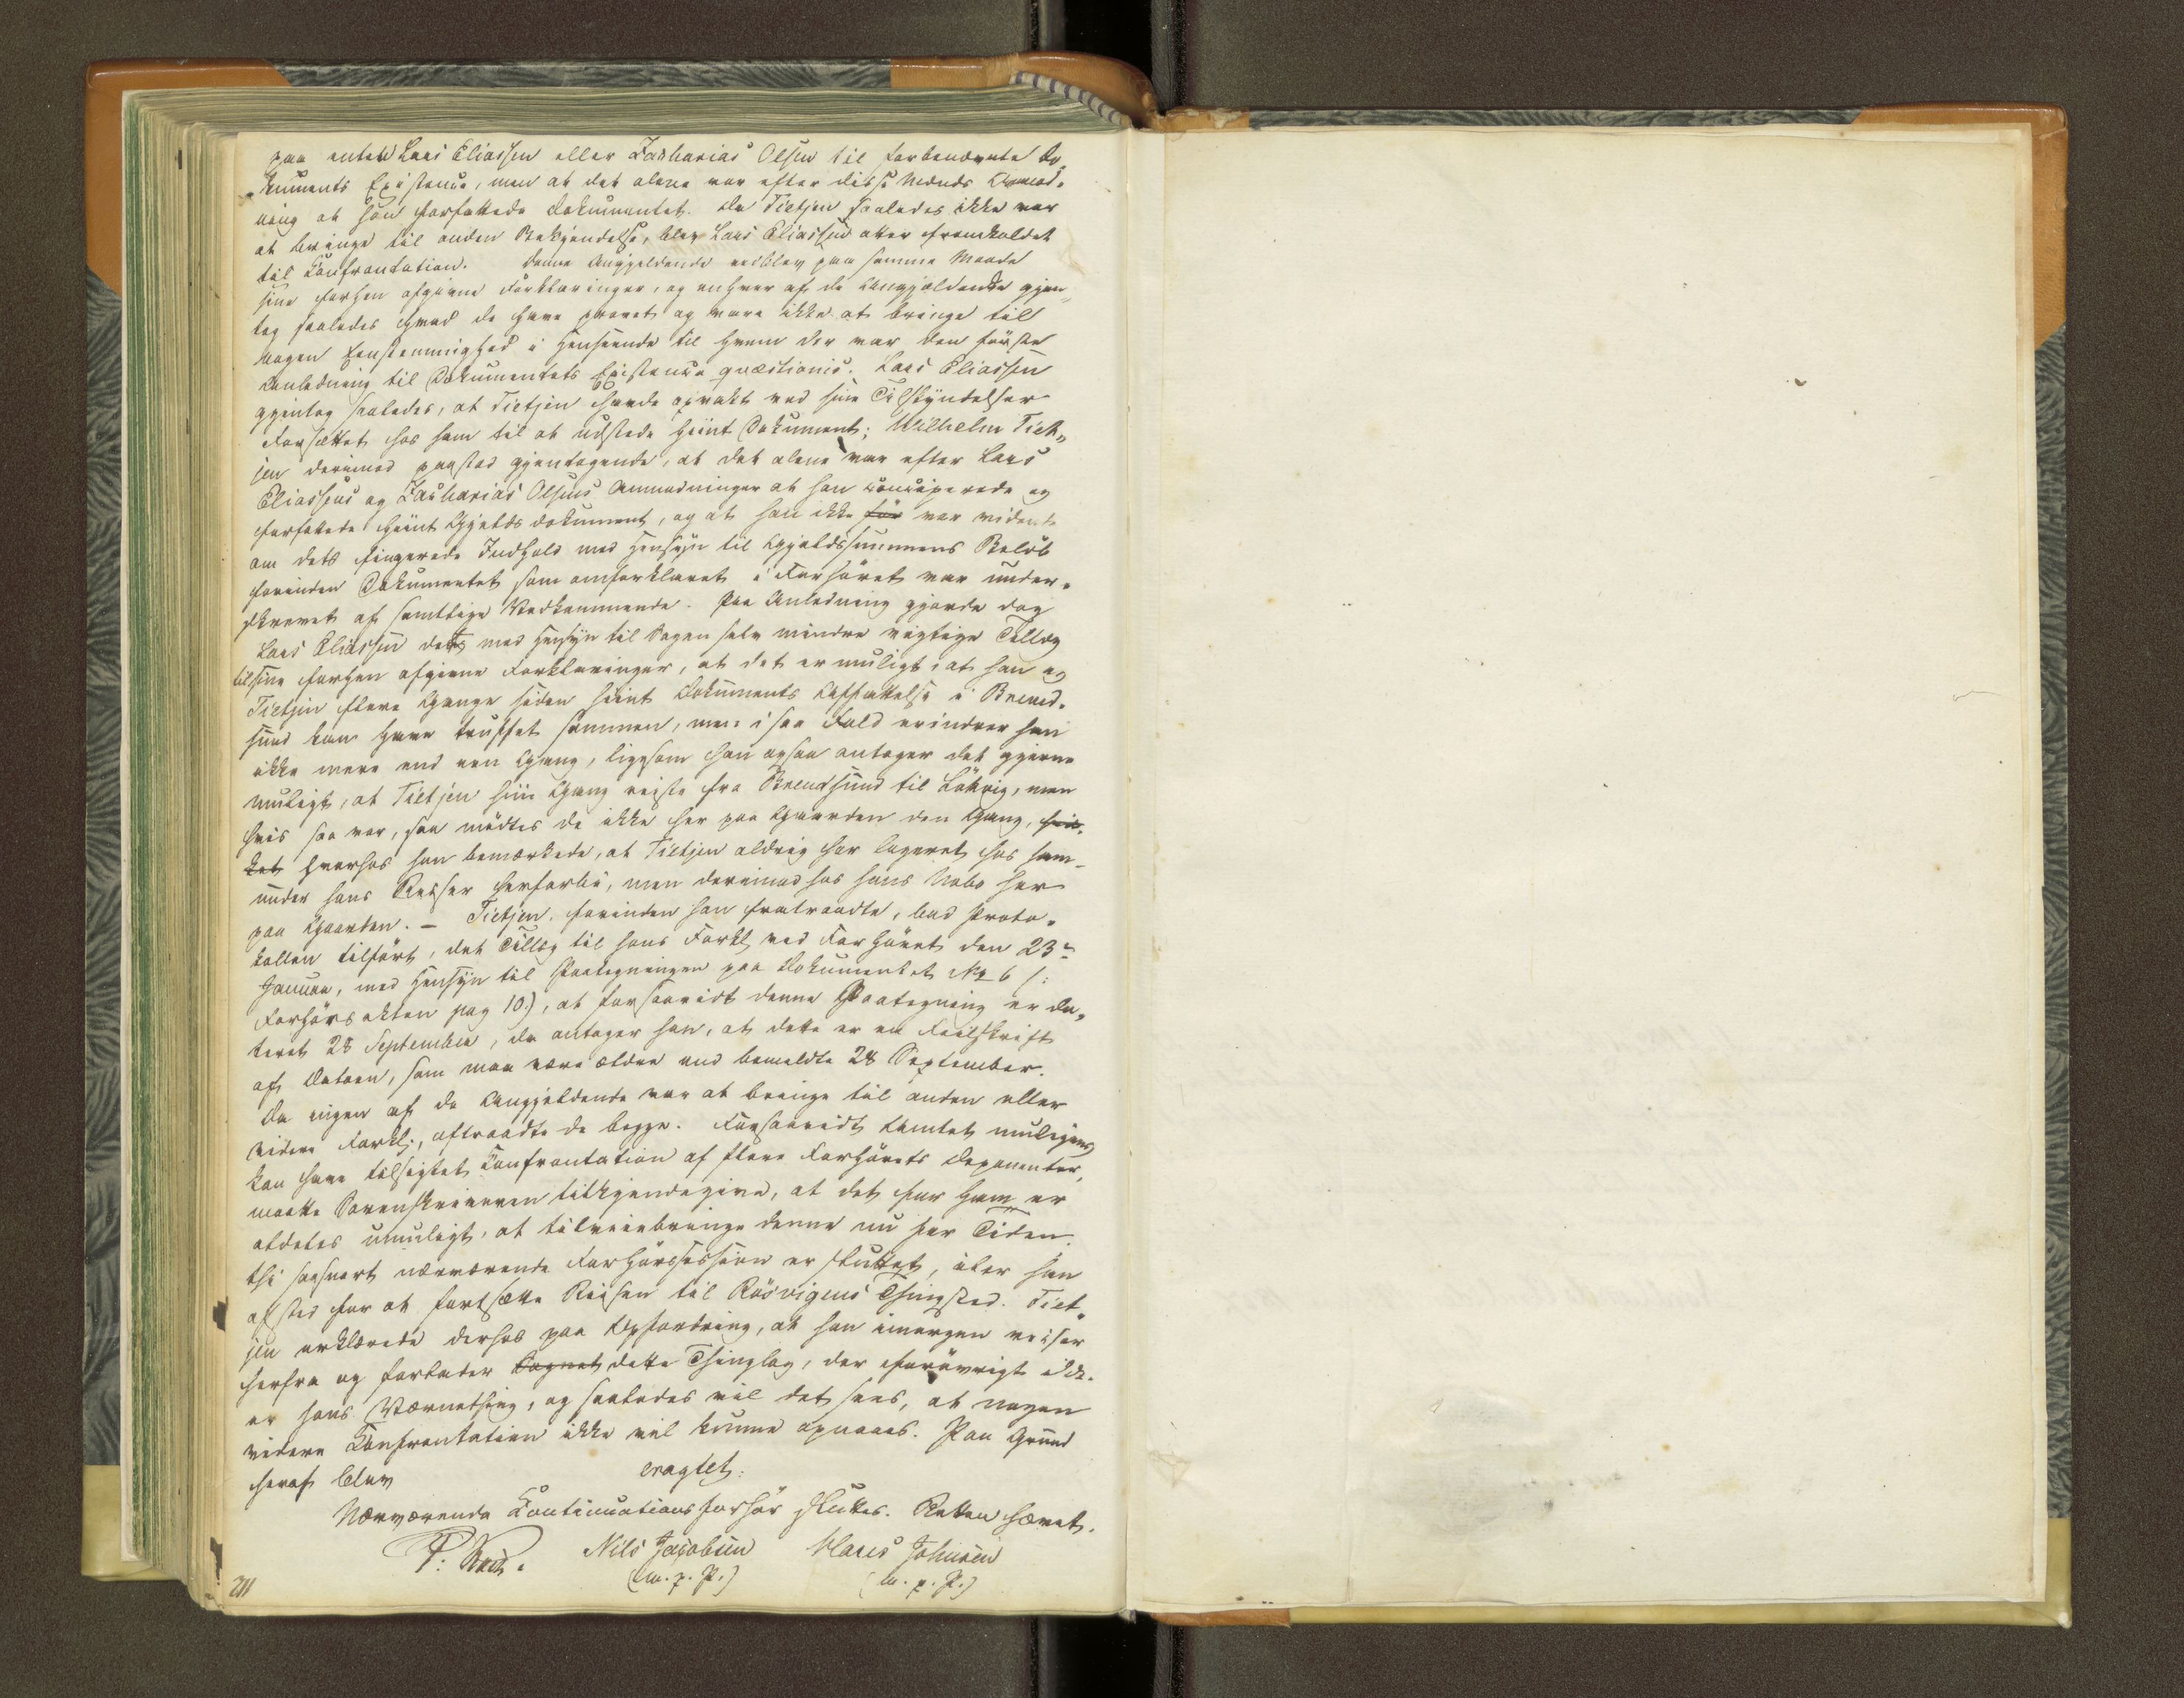 paa enten Lars Eliassen eller Zacharias Olsen til forbenævnte Do„
kuments Existence, men at det alene var efter disse Mænds Anmod„
ning at han forfattede Dokumentet. Da Tietjen saaledes ikke var
at bringe til anden Bekjendelse, blev Lars Eliassen atter fremkaldet
til Confrontation. Denne Angjeldende vedblev paa samme Maade
sine forhen afgivne Forklaringer, og enhver af de Angjældende gjen„
tog saaledes hvad de have provet og vare ikke at bringe til
nogen Eenstemmighed i Henseende til hvem der var den første
Anledning til Dokumentets Existence quæstionis. Lars Eliassen
gjentog saaledes, at Tietjen havde opvakt ved sine Tilskyndelser
Forsættet hos ham til at udstede hiint Dokument; Wilhelm Tiet„
jen derimod paastod gjentagende, at det alene var efter Lars
Eliassens og Zacharias Olsens Anmodninger at han conciperede og
forfattede hiint Gjeldsdokument, og at han ikke før var vidende
om dets fingerede Indhold med Hensyn til Gjældssummens Beløb
forinden Dokumentet som omforklaret i Forhøret var under„
skrevet af samtlige Vedkommende. Paa Anledning gjorde dog
Lars Eliassen dette med Hensyn til Sagen selv mindre vigtige Tillæg
til sine forhen afgivne Forklaringer, at det er muligt, at han og
Tietjen flere Gange siden hiint Dokuments Affattelse i Brend„
sund kan have truffet sammen, men i saa Fald erindrer han
ikke mere end een Gang, ligesom han ogsaa antager det gjerne
muligt, at Tietjen hiin Gang reiste fra Brendsund til Løkvig, men
hvis saa var, saa mødtes de ikke her paa Gaarden den Gang, hvil„
ket hvorhos han bemærkede, at Tietjen aldrig har logeret hos ham
under hans Reiser herforbi, men derimod hos hans Nabo her
paa Gaarden. – Tietjen, forinden han fratraadte, bad Proto„
kollen tilført, det Tillæg til hans Forkl. ved Forhøret den 23de
Januar, med Hensyn til Paategningen paa Dokumentet No 6 /:
Forhørsakten pag 10.), at forsaavidt denne Paategning er da„
teret 28 September, da antager han, at dette er en Feilskrift
af Datoen, som maa være ældre end bemeldte 28 September.
Da ingen af de Angjeldende var at bringe til anden eller
videre Forkl:, aftraadte de begge. Forsaavidt Amtet muligens
kan have tilsigtet Confrontation af flere Forhørets Deponenter,
maatte Sorenskriveren tilkjendegive, at det for ham er
aldeles umuligt, at tilveiebringe denne nu for Tiden,
thi saasnart nærværende Forhørssession er sluttet, iler han
afsted for at fortsætte Reisen til Røsvigens Thingsted. Tiet„
jen erklærede derhos paa Opfordring, at han imorgen reiser
herfra og forlader Sognet dette Thinglag, der forøvrigt ikke
er hans Værnething, og saaledes vil det sees, at nogen
videre Confrontation ikke vil kunne opnaaes. Paa Grund
heraf blev eragtet:
Nærværende Continuationsforhør sluttes. Retten hævet.
Nils Jacobsen Hans Johnsen
(m. p. P.) (m. p. P.)
211